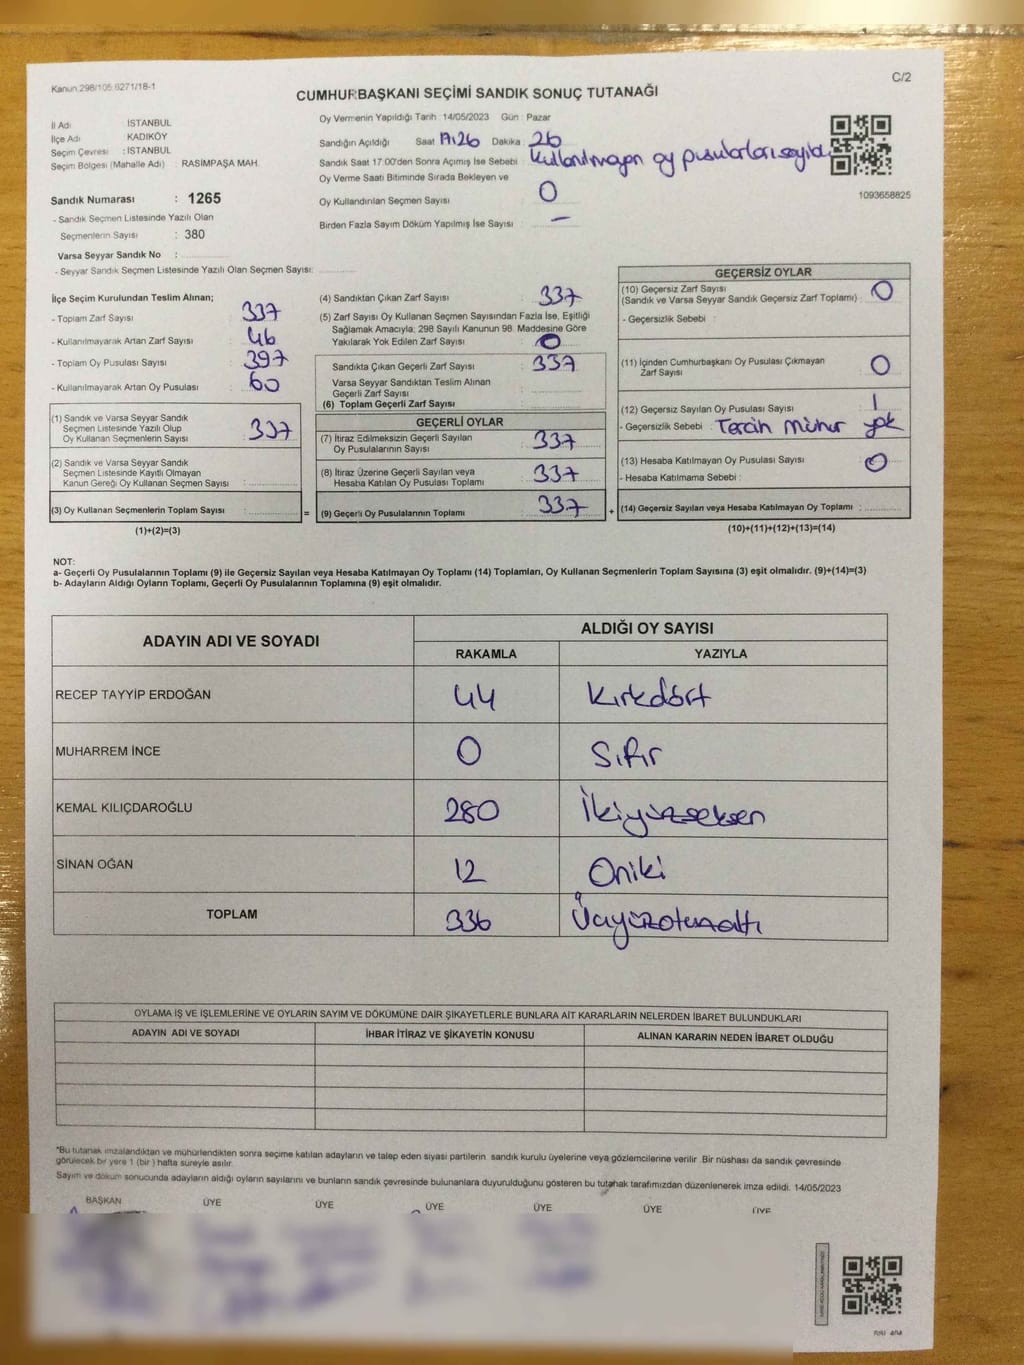 Kanun 298/105 6271/18-1
C/2
CUMHURBAŞKANI SEÇİMİ SANDIK SONUÇ TUTANAĞI
İl Adı İSTANBUL
İlçe Adı KADIKÖY
Seçim Çevresi : İSTANBUL
Seçim Bölgesi (Mahalle Adı) : RASİMPAŞA MAH.
Sandık Numarası : 1265
- Sandık Seçmen Listesinde Yazılı Olan
Seçmenlerin Sayısı : 380
Varsa Seyyar Sandık No :
- Seyyar Sandık Seçmen Listesinde Yazılı Olan Seçmen Sayısı:
Oy Vermenin Yapıldığı Tarih : 14/05/2023 Gün : Pazar
Sandığın Açıldığı Saat 17:26 Dakika : 26
Sandık Saat 17 00'den Sonra Açımış İse Sebebi : Kullanılmayan oy pusulaları sayıldı
Oy Verme Saati Bitiminde Sırada Bekleyen ve
Oy Kullandırılan Seçmen Sayısı 0
Birden Fazla Sayım Döküm Yapılmış İse Sayısı : -
1093658825
İlçe Seçim Kurulundan Teslim Alınan;
- Toplam Zarf Sayısı : 337
- Kullanılmayarak Artan Zarf Sayısı : 46
- Toplam Oy Pusulası Sayısı : 397
- Kullanılmayarak Artan Oy Pusulası : 60
(1) Sandık ve Varsa Seyyar Sandık
Seçmen Listesinde Yazılı Olup
Oy Kullanan Seçmenlerin Sayısı : 337
(2) Sandık ve Varsa Seyyar Sandık
Seçmen Listesinde Kayıtlı Olmayan
Kanun Gereği Oy Kullanan Seçmen Sayısı :
(3) Oy Kullanan Seçmenlerin Toplam Sayısı :
(1)+(2)=(3)
=
(4) Sandıktan Çıkan Zarf Sayısı : 337
(5) Zarf Sayısı Oy Kullanan Seçmen Sayısından Fazla İse, Eşitliği
Sağlamak Amacıyla; 298 Sayılı Kanunun 98. Maddesine Göre
Yakılarak Yok Edilen Zarf Sayısı : 0
Sandıkta Çıkan Geçerli Zarf Sayısı : 337
Varsa Seyyar Sandıktan Teslim Alınan
Geçerli Zarf Sayısı :
(6) Toplam Geçerli Zarf Sayısı :
GEÇERLİ OYLAR
(7) İtiraz Edilmeksizin Geçerli Sayılan
Oy Pusulalarının Sayısı : 337
(8) İtiraz Üzerine Geçerli Sayılan veya
Hesaba Katılan Oy Pusulası Toplamı : 337
(9) Geçerli Oy Pusulalarının Toplamı : 337
+
GEÇERSİZ OYLAR
(10) Geçersiz Zarf Sayısı
(Sandık ve Varsa Seyyar Sandık Geçersiz Zarf Toplamı) : 0
- Geçersizlik Sebebi :
(11) İçinden Cumhurbaşkanı Oy Pusulası Çıkmayan
Zarf Sayısı : 0
(12) Geçersiz Sayılan Oy Pusulası Sayısı : 1
- Geçersizlik Sebebi : Tercih mühür yok
(13) Hesaba Katılmayan Oy Pusulası Sayısı : 0
- Hesaba Katılmama Sebebi :
(14) Geçersiz Sayılan veya Hesaba Katılmayan Oy Toplamı :
(10)+(11)+(12)+(13)=(14)
NOT:
a- Geçerli Oy Pusulalarının Toplamı (9) ile Geçersiz Sayılan veya Hesaba Katılmayan Oy Toplamı (14) Toplamları, Oy Kullanan Seçmenlerin Toplam Sayısına (3) eşit olmalıdır. (9)+(14)=(3)
b- Adayların Aldığı Oyların Toplamı, Geçerli Oy Pusulalarının Toplamına (9) eşit olmalıdır.
ADAYIN ADI VE SOYADI ALDIĞI OY SAYISI
RAKAMLA YAZIYLA
RECEP TAYYİP ERDOĞAN 44 Kırkdört
MUHARREM İNCE 0 Sıfır
KEMAL KILIÇDAROĞLU 280 İkiyüzseksen
SİNAN OĞAN 12 Oniki
TOPLAM 336 Üçyüzotuzaltı
OYLAMA İŞ VE İŞLEMLERİNE VE OYLARIN SAYIM VE DÖKÜMÜNE DAİR ŞİKAYETLERLE BUNLARA AİT KARARLARIN NELERDEN İBARET BULUNDUKLARI
ADAYIN ADI VE SOYADI İHBAR İTİRAZ VE ŞİKAYETİN KONUSU ALINAN KARARIN NEDEN İBARET OLDUĞU
*Bu tutanak imzalandıktan ve mühürlendikten sonra seçime katılan adayların ve talep eden siyasi partilerin sandık kurulu üyelerine veya gözlemcilerine verilir .Bir nüshası da sandık çevresinde
görülecek bir yere 1 (bir ) hafta süreyle asılır.
Sayım ve döküm sonucunda adayların aldığı oyların sayılarını ve bunların sandık çevresinde bulunanlara duyurulduğunu gösteren bu tutanak tarafımızdan düzenlenerek imza edildi. 14/05/2023
BAŞKAN ÜYE ÜYE ÜYE ÜYE ÜYE ÜYE